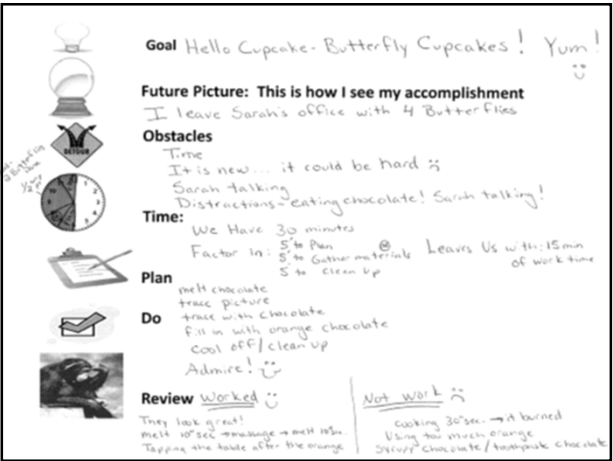 Goal Hello Cupcake - Butterfly Cupcakes! Yum!
Future Picture: This is how I see my accomplishment
I leave Sarah's office with 4 Butterflies
Obstacles
DETOUR
Time
It is new... it could be hard
Sarah talking
Distractions - eating chocolate! Sarah talking!
Time:
We Have 30 minutes
Factor In: 5' to Plan
5' to Gather materials
5' to Clean Up
Leaves Us with: 15 min
of work time
Plan
melt chocolate
trace picture
Do
trace with chocolate
fill in with orange chocolate
Cool off / clean up
Admire!
Review Worked
They look great!
melt 10" sec → massage → melt 10 sec.
Tapping the table after the orange
Not Work
cooking 30" sec. → it burned
Using too much orange
Syrupy chocolate / toothpaste chocolate